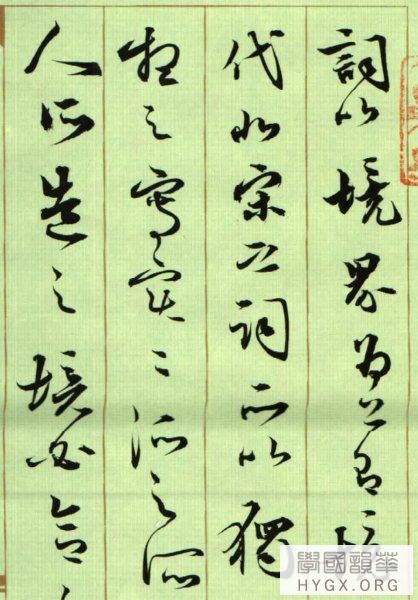 詞以境界為上有境
代北宋之詞所以獨
想與寫實二派之所
人所造之境必合
華韻國學
HYGX.ORG